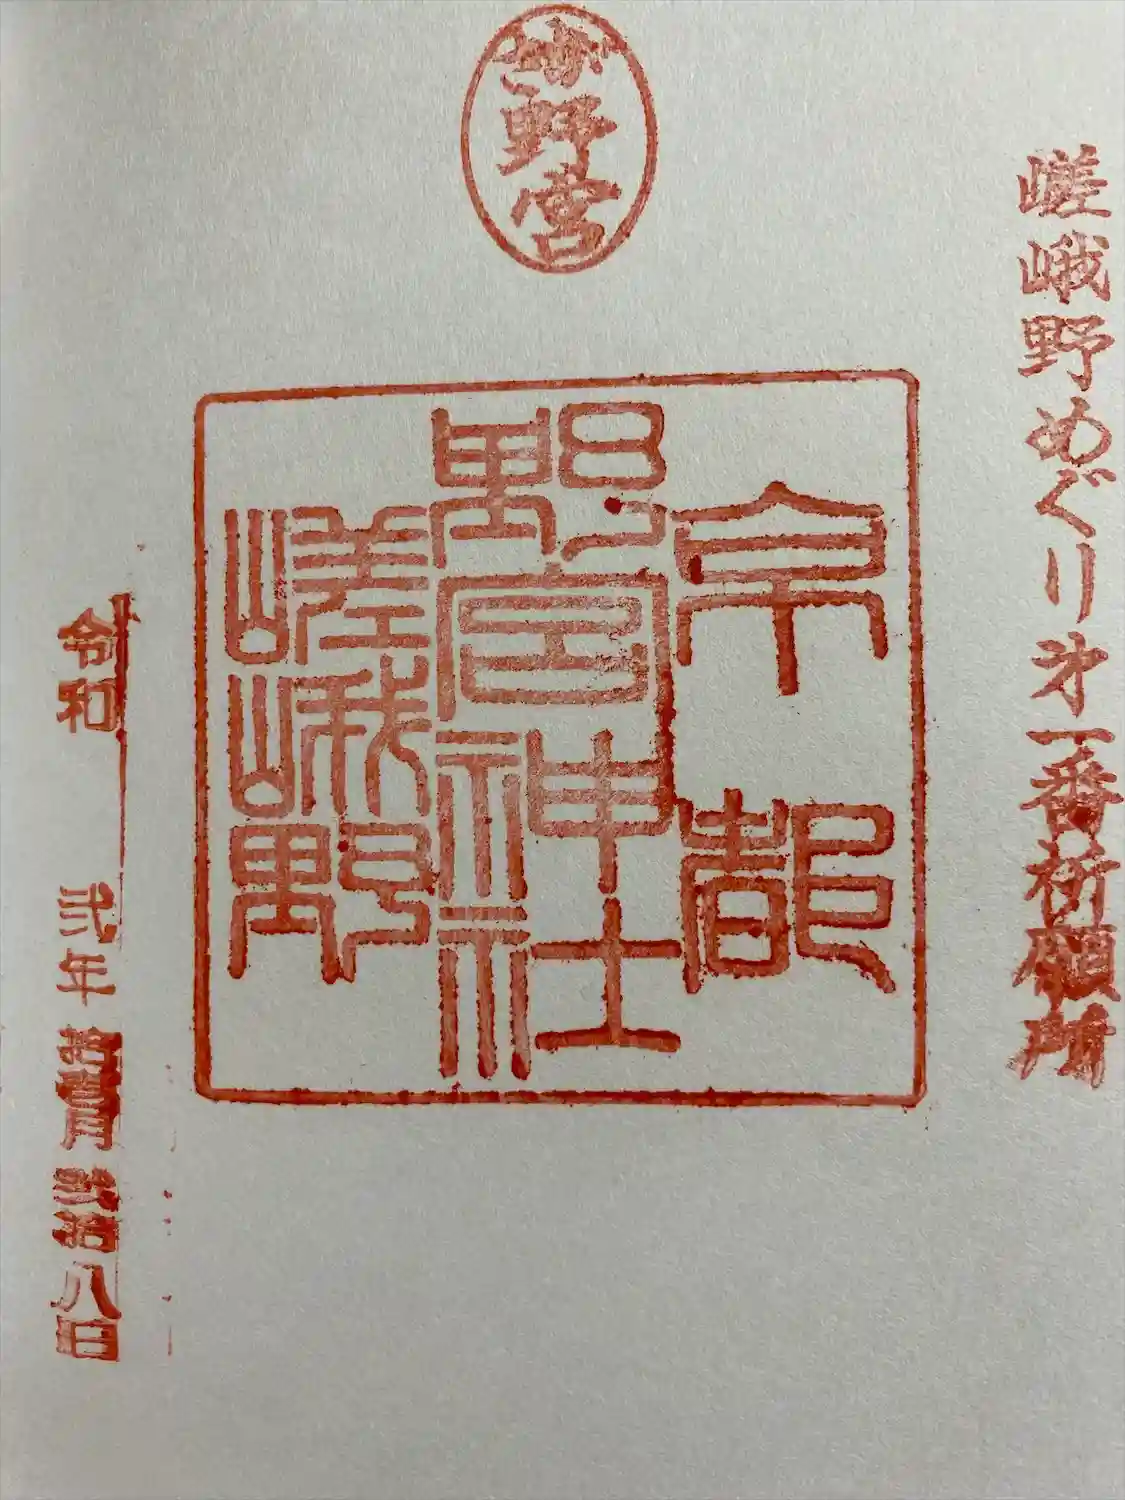 嵯峨野めぐり㐧一番祈願所
野宮
京都
野宮神社
嵯峨野
令和 弐年 拾月 弐拾八日